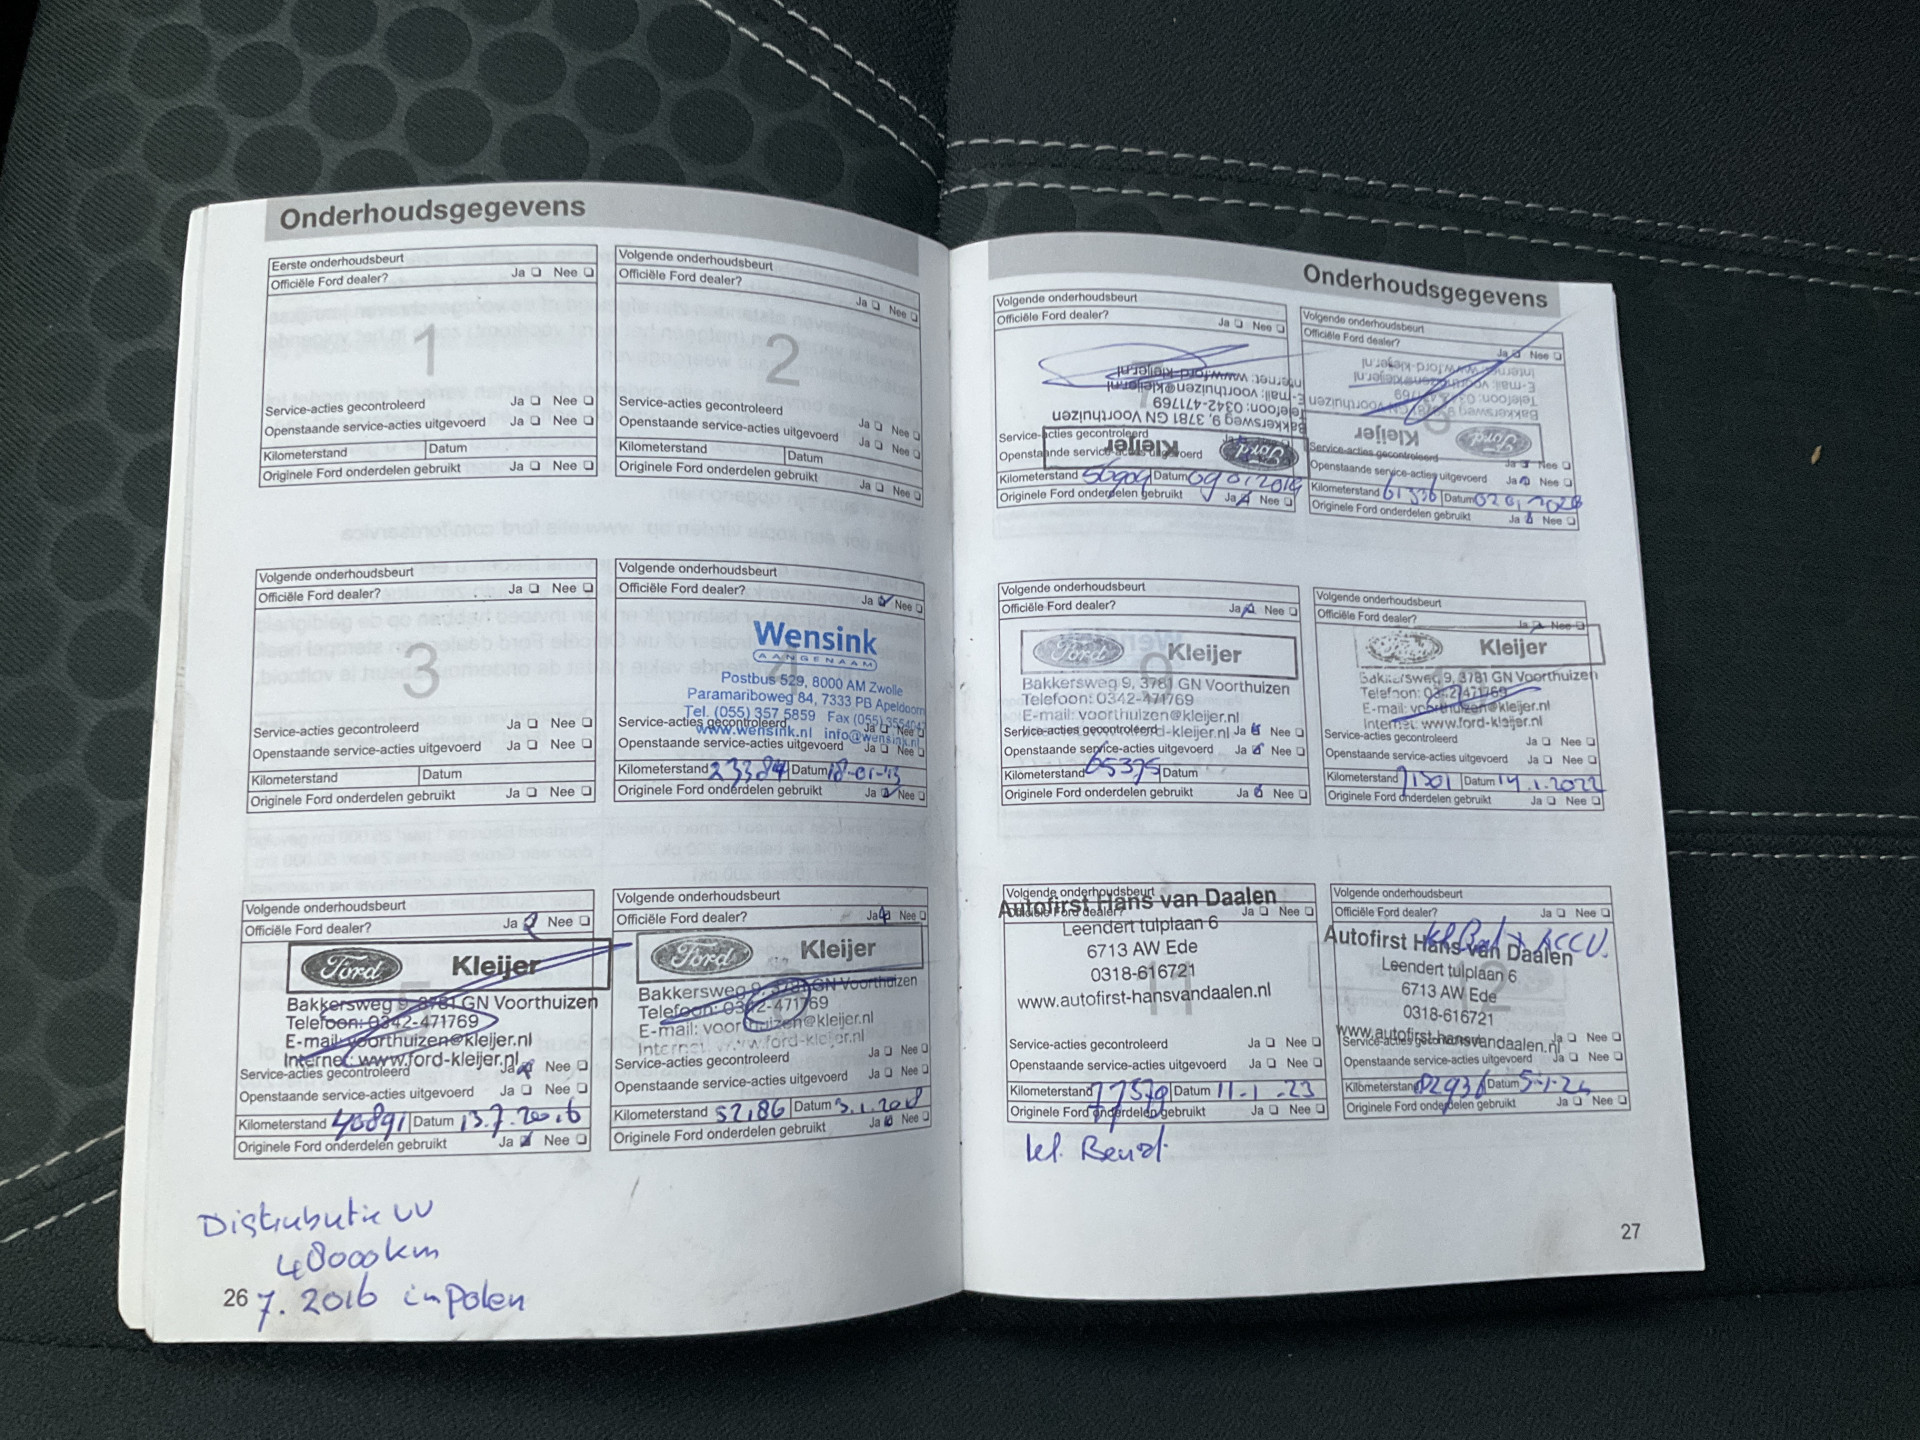 Onderhoudsgegevens
Eerste onderhoudsbeurt
Officiële Ford dealer? Ja Nee
1
Service-acties gecontroleerd Ja Nee
Openstaande service-acties uitgevoerd Ja Nee
Kilometerstand Datum
Originele Ford onderdelen gebruikt Ja Nee
Volgende onderhoudsbeurt
Officiële Ford dealer? Ja Nee
2
Service-acties gecontroleerd Ja Nee
Openstaande service-acties uitgevoerd Ja Nee
Kilometerstand Datum
Originele Ford onderdelen gebruikt Ja Nee
Volgende onderhoudsbeurt
Officiële Ford dealer? Ja Nee
3
Service-acties gecontroleerd Ja Nee
Openstaande service-acties uitgevoerd Ja Nee
Kilometerstand Datum
Originele Ford onderdelen gebruikt Ja Nee
Volgende onderhoudsbeurt
Officiële Ford dealer? Ja Nee
Wensink
AANGENAAM
4
Postbus 529, 8000 AM Zwolle
Paramariboweg 84, 7333 PB Apeldoorn
Tel. (055) 357 5859 Fax (055) 3554042
www.wensink.nl info@wensink.nl
Service-acties gecontroleerd Ja Nee
Openstaande service-acties uitgevoerd Ja Nee
Kilometerstand 23384 Datum 18-01-'13
Originele Ford onderdelen gebruikt Ja Nee
Volgende onderhoudsbeurt
Officiële Ford dealer? Ja Nee
Ford Kleijer
5
Bakkersweg 9, 3781 GN Voorthuizen
Telefoon: 0342-471769
E-mail: voorthuizen@kleijer.nl
Internet: www.ford-kleijer.nl
Service-acties gecontroleerd Ja Nee
Openstaande service-acties uitgevoerd Ja Nee
Kilometerstand 40891 Datum 13.7.2016
Originele Ford onderdelen gebruikt Ja Nee
Volgende onderhoudsbeurt
Officiële Ford dealer? Ja Nee
Ford Kleijer
Bakkersweg 9, 3781 GN Voorthuizen
Telefoon: 0342-471769
E-mail: voorthuizen@kleijer.nl
Internet: www.ford-kleijer.nl
Service-acties gecontroleerd Ja Nee
Openstaande service-acties uitgevoerd Ja Nee
Kilometerstand 52186 Datum 3.1.2018
Originele Ford onderdelen gebruikt Ja Nee
Distributie VV
48000km
7. 2016 in Polen
26
Onderhoudsgegevens
Volgende onderhoudsbeurt
Officiële Ford dealer? Ja Nee
Internet: www.ford-kleijer.nl
E-mail: voorthuizen@kleijer.nl
Telefoon: 0342-471769
Bakkersweg 9, 3781 GN Voorthuizen
Kleijer Ford
Service-acties gecontroleerd
Openstaande service-acties uitgevoerd
Kilometerstand 56904 Datum 09 01 2019
Originele Ford onderdelen gebruikt Ja Nee
Volgende onderhoudsbeurt
Officiële Ford dealer? Ja Nee
Internet: www.ford-kleijer.nl
E-mail: voorthuizen@kleijer.nl
Telefoon: 0342-471769
Bakkersweg 9, 3781 GN Voorthuizen
Kleijer Ford
Service-acties gecontroleerd Ja Nee
Openstaande service-acties uitgevoerd Ja Nee
Kilometerstand 61536 Datum 02 01 2020
Originele Ford onderdelen gebruikt Ja Nee
Volgende onderhoudsbeurt
Officiële Ford dealer? Ja Nee
Ford Kleijer
9
Bakkersweg 9, 3781 GN Voorthuizen
Telefoon: 0342-471769
E-mail: voorthuizen@kleijer.nl
Service-acties gecontroleerd Ja Nee
Openstaande service-acties uitgevoerd Ja Nee
Kilometerstand 65375 Datum
Originele Ford onderdelen gebruikt Ja Nee
Volgende onderhoudsbeurt
Officiële Ford dealer? Ja Nee
Kleijer
Bakkersweg 9, 3781 GN Voorthuizen
Telefoon: 0342-471769
E-mail: voorthuizen@kleijer.nl
Internet: www.ford-kleijer.nl
Service-acties gecontroleerd Ja Nee
Openstaande service-acties uitgevoerd Ja Nee
Kilometerstand 71301 Datum 14.1.2022
Originele Ford onderdelen gebruikt Ja Nee
Volgende onderhoudsbeurt
Autofirst Hans van Daalen
Officiële Ford dealer? Ja Nee
Leendert tulplaan 6
6713 AW Ede
0318-616721
11
www.autofirst-hansvandaalen.nl
Service-acties gecontroleerd Ja Nee
Openstaande service-acties uitgevoerd Ja Nee
Kilometerstand 77579 Datum 11-1-23
Originele Ford onderdelen gebruikt Ja Nee
kl. Beurt
Volgende onderhoudsbeurt
Officiële Ford dealer? Ja Nee
ACCU.
Autofirst Hans van Daalen
Leendert tulplaan 6
12
6713 AW Ede
0318-616721
www.autofirst-hansvandaalen.nl
Service-acties gecontroleerd Ja Nee
Openstaande service-acties uitgevoerd Ja Nee
Kilometerstand 82936 Datum 5-1-24
Originele Ford onderdelen gebruikt Ja Nee
27